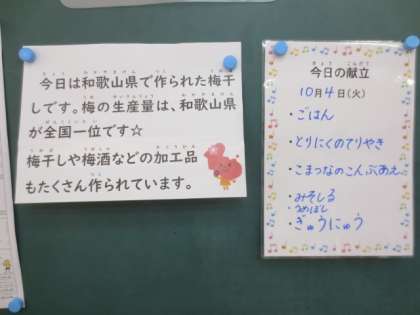 今日は和歌山県で作られた梅干
しです。梅の生産量は、和歌山県
が全国一位です☆
梅干しや梅酒などの加工品
もたくさん作られています。
今日の献立
10月4日(火)
・ごはん
・とりにくのてりやき
・こまつなのこんぶあえ
・みそしる
・うめぼし
・ぎゅうにゅう